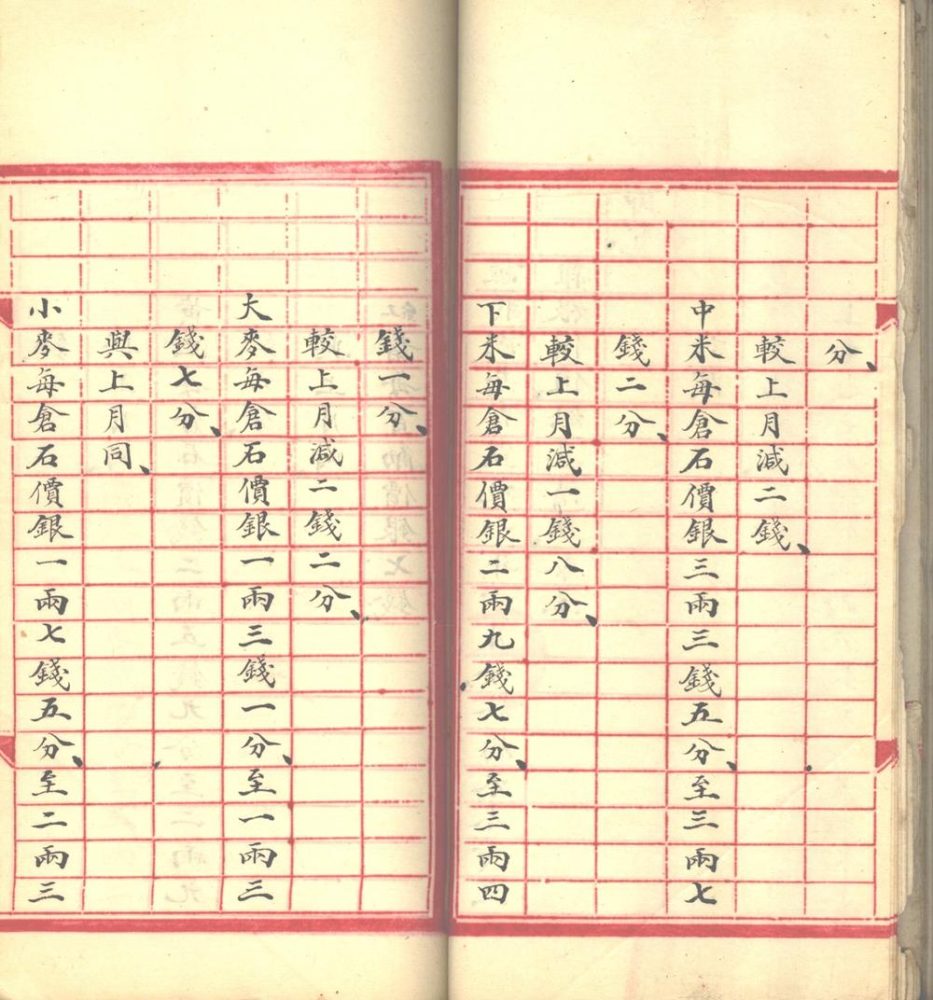 分、
較上月減二錢、
中米每倉石價銀三兩三錢五分、至三兩七
錢二分、
較上月減一錢八分、
下米每倉石價銀二兩九錢七分、至三兩四
錢一分、
較上月減二錢二分、
大麥每倉石價銀一兩三錢一分、至一兩三
錢七分、
與上月同、
小麥每倉石價銀一兩七錢五分、至二兩三